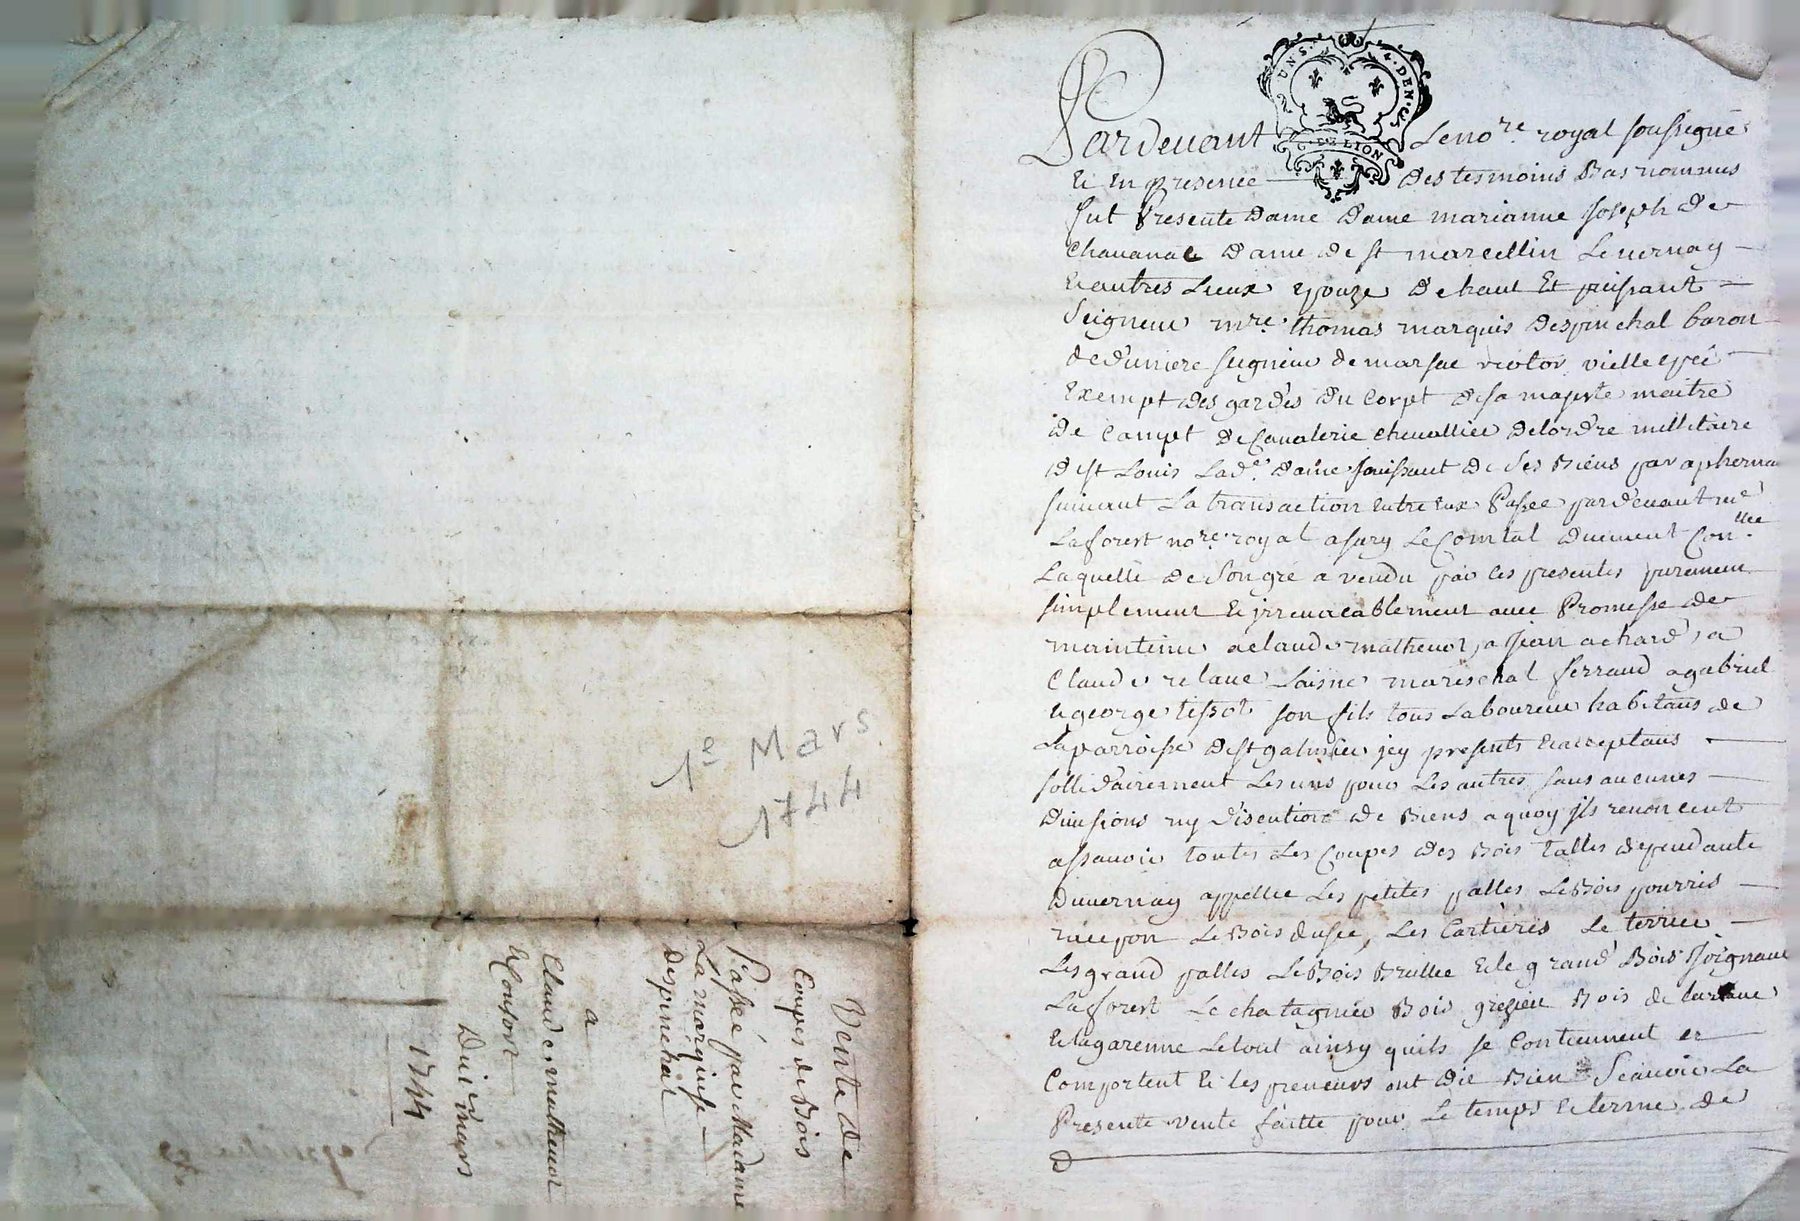 1e Mars
1744
Vente de
Coupes de Bois
Passée par Madame
La marquise
Despinchal
a
Claude mathevot
& Consort
Du 1er mars
1744
UN S. 4. DEN. G. DE LION
Pardevant Le nore. royal soussigné
Et En presence Des tesmoins Bas nommes
fut Presente Dame Dame marianne Joseph De
Chavanac Dame De st marcellin Levernay
Et autres Lieux epouze De haut Et puissant
Seigneur mre. thomas marquis Despinchal baron
de Duniere seigneur de marsac vielle
Exempt Des gardes Du Corpt De sa majesté maitre
De Campt De Cavalerie chevallier De lordre millitaire
De st Louis Lade. Dame Jouissant De Ses Biens par apherna
suivant La transaction Entre Eux Passée pardevant me
Lafforest nore. royal a sury Le Comtal Duement Conllée
Laquelle De Son gré a vendu par ces presentes purement
simplement Et jrrevocablement avec Promesse de
maintenir a claude mathevot, a Jean achard, a
Claude relave Laisne mareschal ferrand a gabriel
Et george tissot son fils tous Laboureur habitans de
La parroisse De st galmier jcy presents Et acceptans
sollidairement Les uns pour Les autres sans aucunes
Divisions ny Disention De Biens a quoy jls renoncent
assavoir toutes Les Coupes Des Bois talles dependante
Du vernay appellée Les petites palles Le Bois pourris
Le Bois Les Cartieres Le
Les grand palles Le Bois Brullée Et le grand Bois Joignant
Lafforest Le chatagnier Bois Bois de
Et la garenne Le tout ainsy quils se Contiennent et
Comportent Et les preneurs ont dit Bien Scavoir La
Presente vente faitte pour Le temps Et terme de